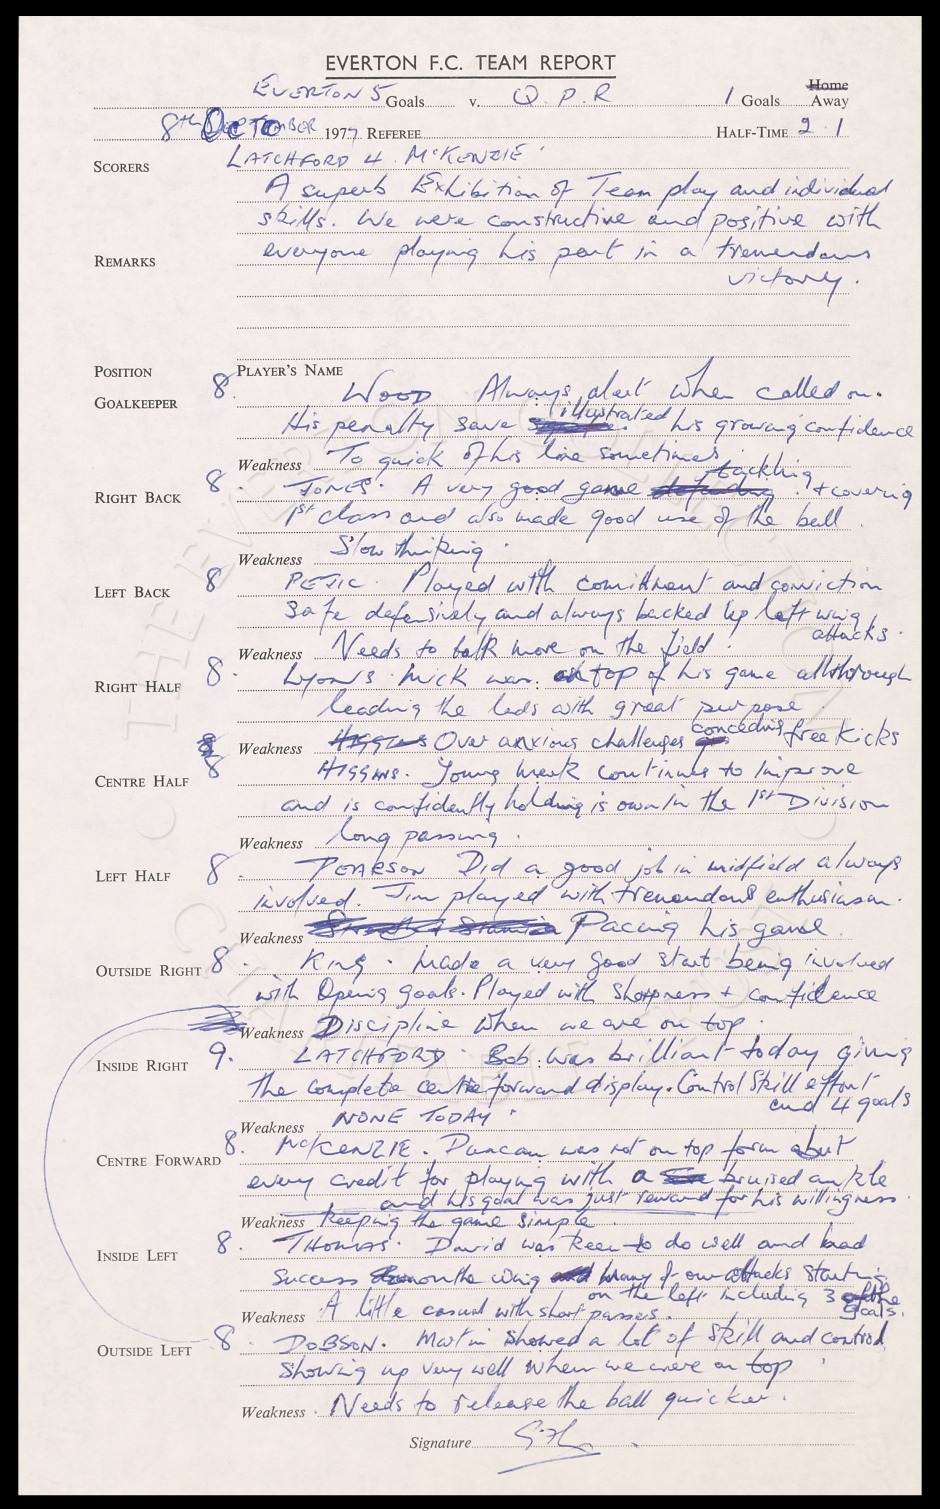 EVERTON F.C. TEAM REPORT
Home
EVERTON 5 Goals v. Q.P.R 1 Goals Away
8th OCTOBER 1977 REFEREE HALF-TIME 2.1
SCORERS LATCHFORD 4. McKENZIE
A superb Exhibition of Team play and individual
skills. We were constructive and positive with
REMARKS everyone playing his part in a tremendous
victory.
POSITION PLAYER'S NAME
GOALKEEPER 8. WOOD Always alert when called on.
His penalty save illustrated his growing confidence
Weakness To quick of his line sometimes
RIGHT BACK 8. JONES. A very good game defending tackling + covering
1st class and also made good use of the ball
Weakness Slow thinking.
LEFT BACK 8 PEJIC. Played with comittment and conviction
Safe defensively and always backed up left wing
attacks.
Weakness Needs to talk more on the field.
RIGHT HALF 8. Lyons Mick was on top of his game all through
leading the lads with great purpose.
Weakness HIGGINS Over anxious challenges conceding free kicks
CENTRE HALF 8 HIGGINS. Young Mark continues to improve
and is confidently holding is own in the 1st Division
Weakness long passing.
LEFT HALF 8. PEARSON Did a good job in midfield always
involved. Jim played with tremendous enthusiasm.
Weakness Pacing his game.
OUTSIDE RIGHT 8. KING. Made a very good start being involved
with Opening goals. Played with sharpness + confidence
Weakness Discipline when we are on top.
INSIDE RIGHT 9. LATCHFORD. Bob was brilliant today giving
the complete centre forward display. Control skill effort
and 4 goals
Weakness NONE TODAY.
CENTRE FORWARD 8. McKENZIE. Duncan was not on top form about
every credit for playing with a bruised ankle
and his goal was just reward for his willingness.
Weakness keeping the game simple.
INSIDE LEFT 8. THOMAS. David was keen to do well and had
success on the wing many of our attacks starting
on the left including 3 of the
goals.
Weakness A little casual with short passes.
OUTSIDE LEFT 8 DOBSON. Martin showed a lot of skill and control
showing up very well when we were on top.
Weakness Needs to release the ball quicker.
Signature